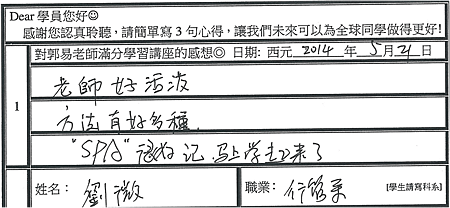 Dear 學員您好☺
感謝您認真聆聽，請簡單寫 3 句心得，讓我們未來可以為全球同學做得更好!
對郭易老師滿分學習講座的感想☺ 日期: 西元 2014 年 5 月 21 日
1
老師好活泼
方法有好多種.
"SPA" 很好记,马上学起来了
姓名: 劉微
職業: [學生請寫科系]